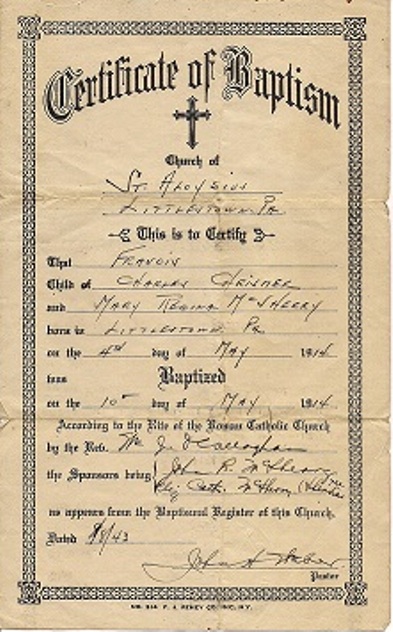 Certificate of Baptism
Church of
St. Aloysius
Littlestown Pa
This is to Certify
That Francis
Child of Charles
and Mary Regina McSherry
born in Littlestown Pa
on the 4th day of May 1914
was Baptized
on the 10th day of May 1914
According to the Rite of the Roman Catholic Church
by the Rev. Wm J. O'Callaghan
the Sponsors being John R. McSherry
Cath. McSherry
as appears from the Baptismal Register of this Church.
Dated /43
John H. Weber
Pastor